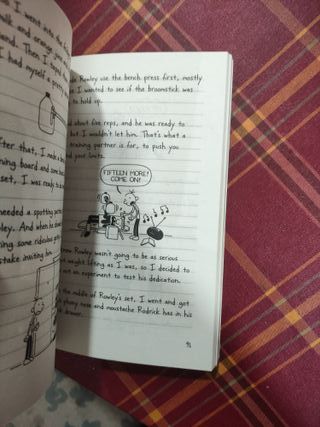 I went into the
milk and orange
Then I
I had myself a
After that, I made a
board and some
set, I was ready to
needed a spotting
And when he
some ridiculous
take inviting him.
Rowley use the bench press first, mostly
I wanted to see if the broomstick was
to hold up.
about five reps, and he was ready to
but I wouldn't let him. That's what a
training partner is for, to push you
your limits.
FIFTEEN MORE!
COME ON!
Rowley wasn't going to be as serious
weight lifting as I was, so I decided to
an experiment to test his dedication.
the middle of Rowley's set, I went and got
phony nose and moustache Rodrick has in his
drawer.
91